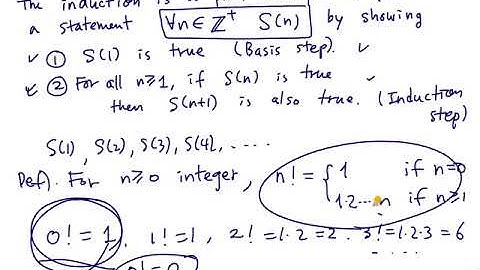 The induction is a
a statement ∀n∈ℤ⁺ S(n) by showing
① S(1) is true (Basis step).
② For all n≥1, if S(n) is true
then S(n+1) is also true. (Induction step)
S(1), S(2), S(3), S(4), ....
Def). For n≥0 integer, n! = { 1 if n=0
1·2···n if n≥1
0! = 1, 1! = 1, 2! = 1·2 = 2. 3! = 1·2·3 = 6
.....
0! = 0